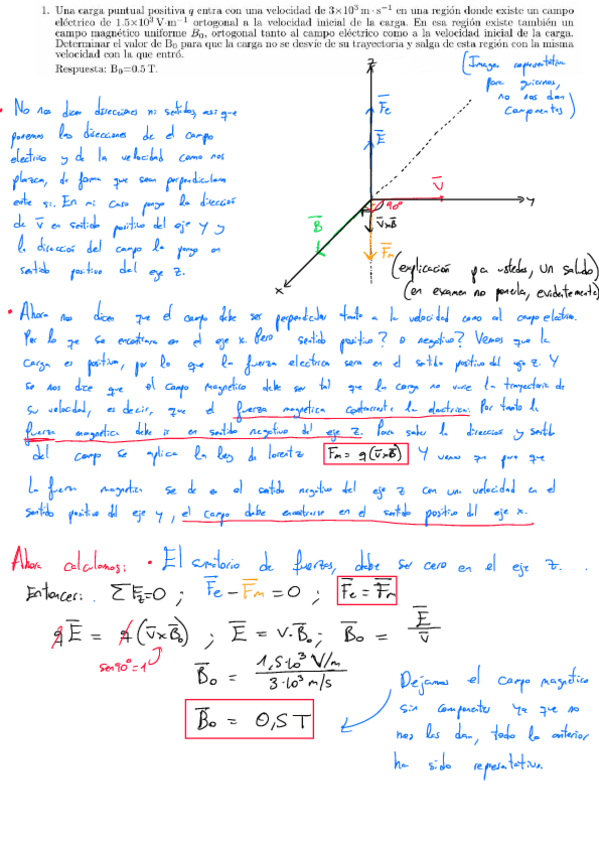 1. Una carga puntual positiva q entra con una velocidad de 3×10³ m · s⁻¹ en una región donde existe un campo
eléctrico de 1.5×10³ V·m⁻¹ ortogonal a la velocidad inicial de la carga. En esa región existe también un
campo magnético uniforme B₀, ortogonal tanto al campo eléctrico como a la velocidad inicial de la carga.
Determinar el valor de B₀ para que la carga no se desvíe de su trayectoria y salga de esta región con la misma
velocidad con la que entró.
Respuesta: B₀=0.5 T.
(Imagen representativa
para guiarnos,
no nos dan
componentes)
• No nos dicen direcciones ni sentidos, así que
ponemos las direcciones de el campo
electrico y de la velocidad como nos
plazca, de forma que sean perpendiculares
entre si. En mi caso pongo la dirección
de v̅ en sentido positivo del eje Y y
la dirección del campo la pongo en
sentido positivo del eje Z.
z
F̅e
E̅
V̅
y
90°
V̅xB̅
B̅
F̅m
x
(explicación pa ustedes, un saludo)
(en examen no ponerla, evidentemente)
• Ahora nos dicen que el campo debe ser perpendicular tanto a la velocidad como al campo eléctrico.
Por lo que se encontrara en el eje x. Pero sentido positivo? o negativo? Vemos que la
carga es positiva, por lo que la fuerza electrica sera en el sentido positivo del eje Z. Y
se nos dice que el campo magnetico debe ser tal que la carga no varie la trayectoria de
su velocidad, es decir, que el fuerza magnetica contrarreste la electrica. Por tanto la
fuerza magnetica debe ir en sentido negativo del eje Z. Para saber la direccion y sentido
del campo se aplica la ley de lorentz F̅m = q(v̅xB̅) Y vemos que para que
La fuerza magnetica se de en el sentido negativo del eje z con una velocidad en el
sentido positivo del eje y, el campo debe encontrarse en el sentido positivo del eje x.
Ahora calculamos: • El sumatorio de fuerzas, debe ser cero en el eje Z.
Entonces: ΣF̅z=0 ; F̅e - F̅m = 0 ; F̅e = F̅m
qE̅ = q(v̅xB̅₀) ; E̅ = v·B̅₀ ; B̅₀ = E̅/v̅
sen90°=1
B̅₀ = 1,5·10³ V/m / 3·10³ m/s
B̅₀ = 0,5 T
Dejamos el campo magnético
sin componentes ya que no
nos las dan, todo lo anterior
ha sido representativo.